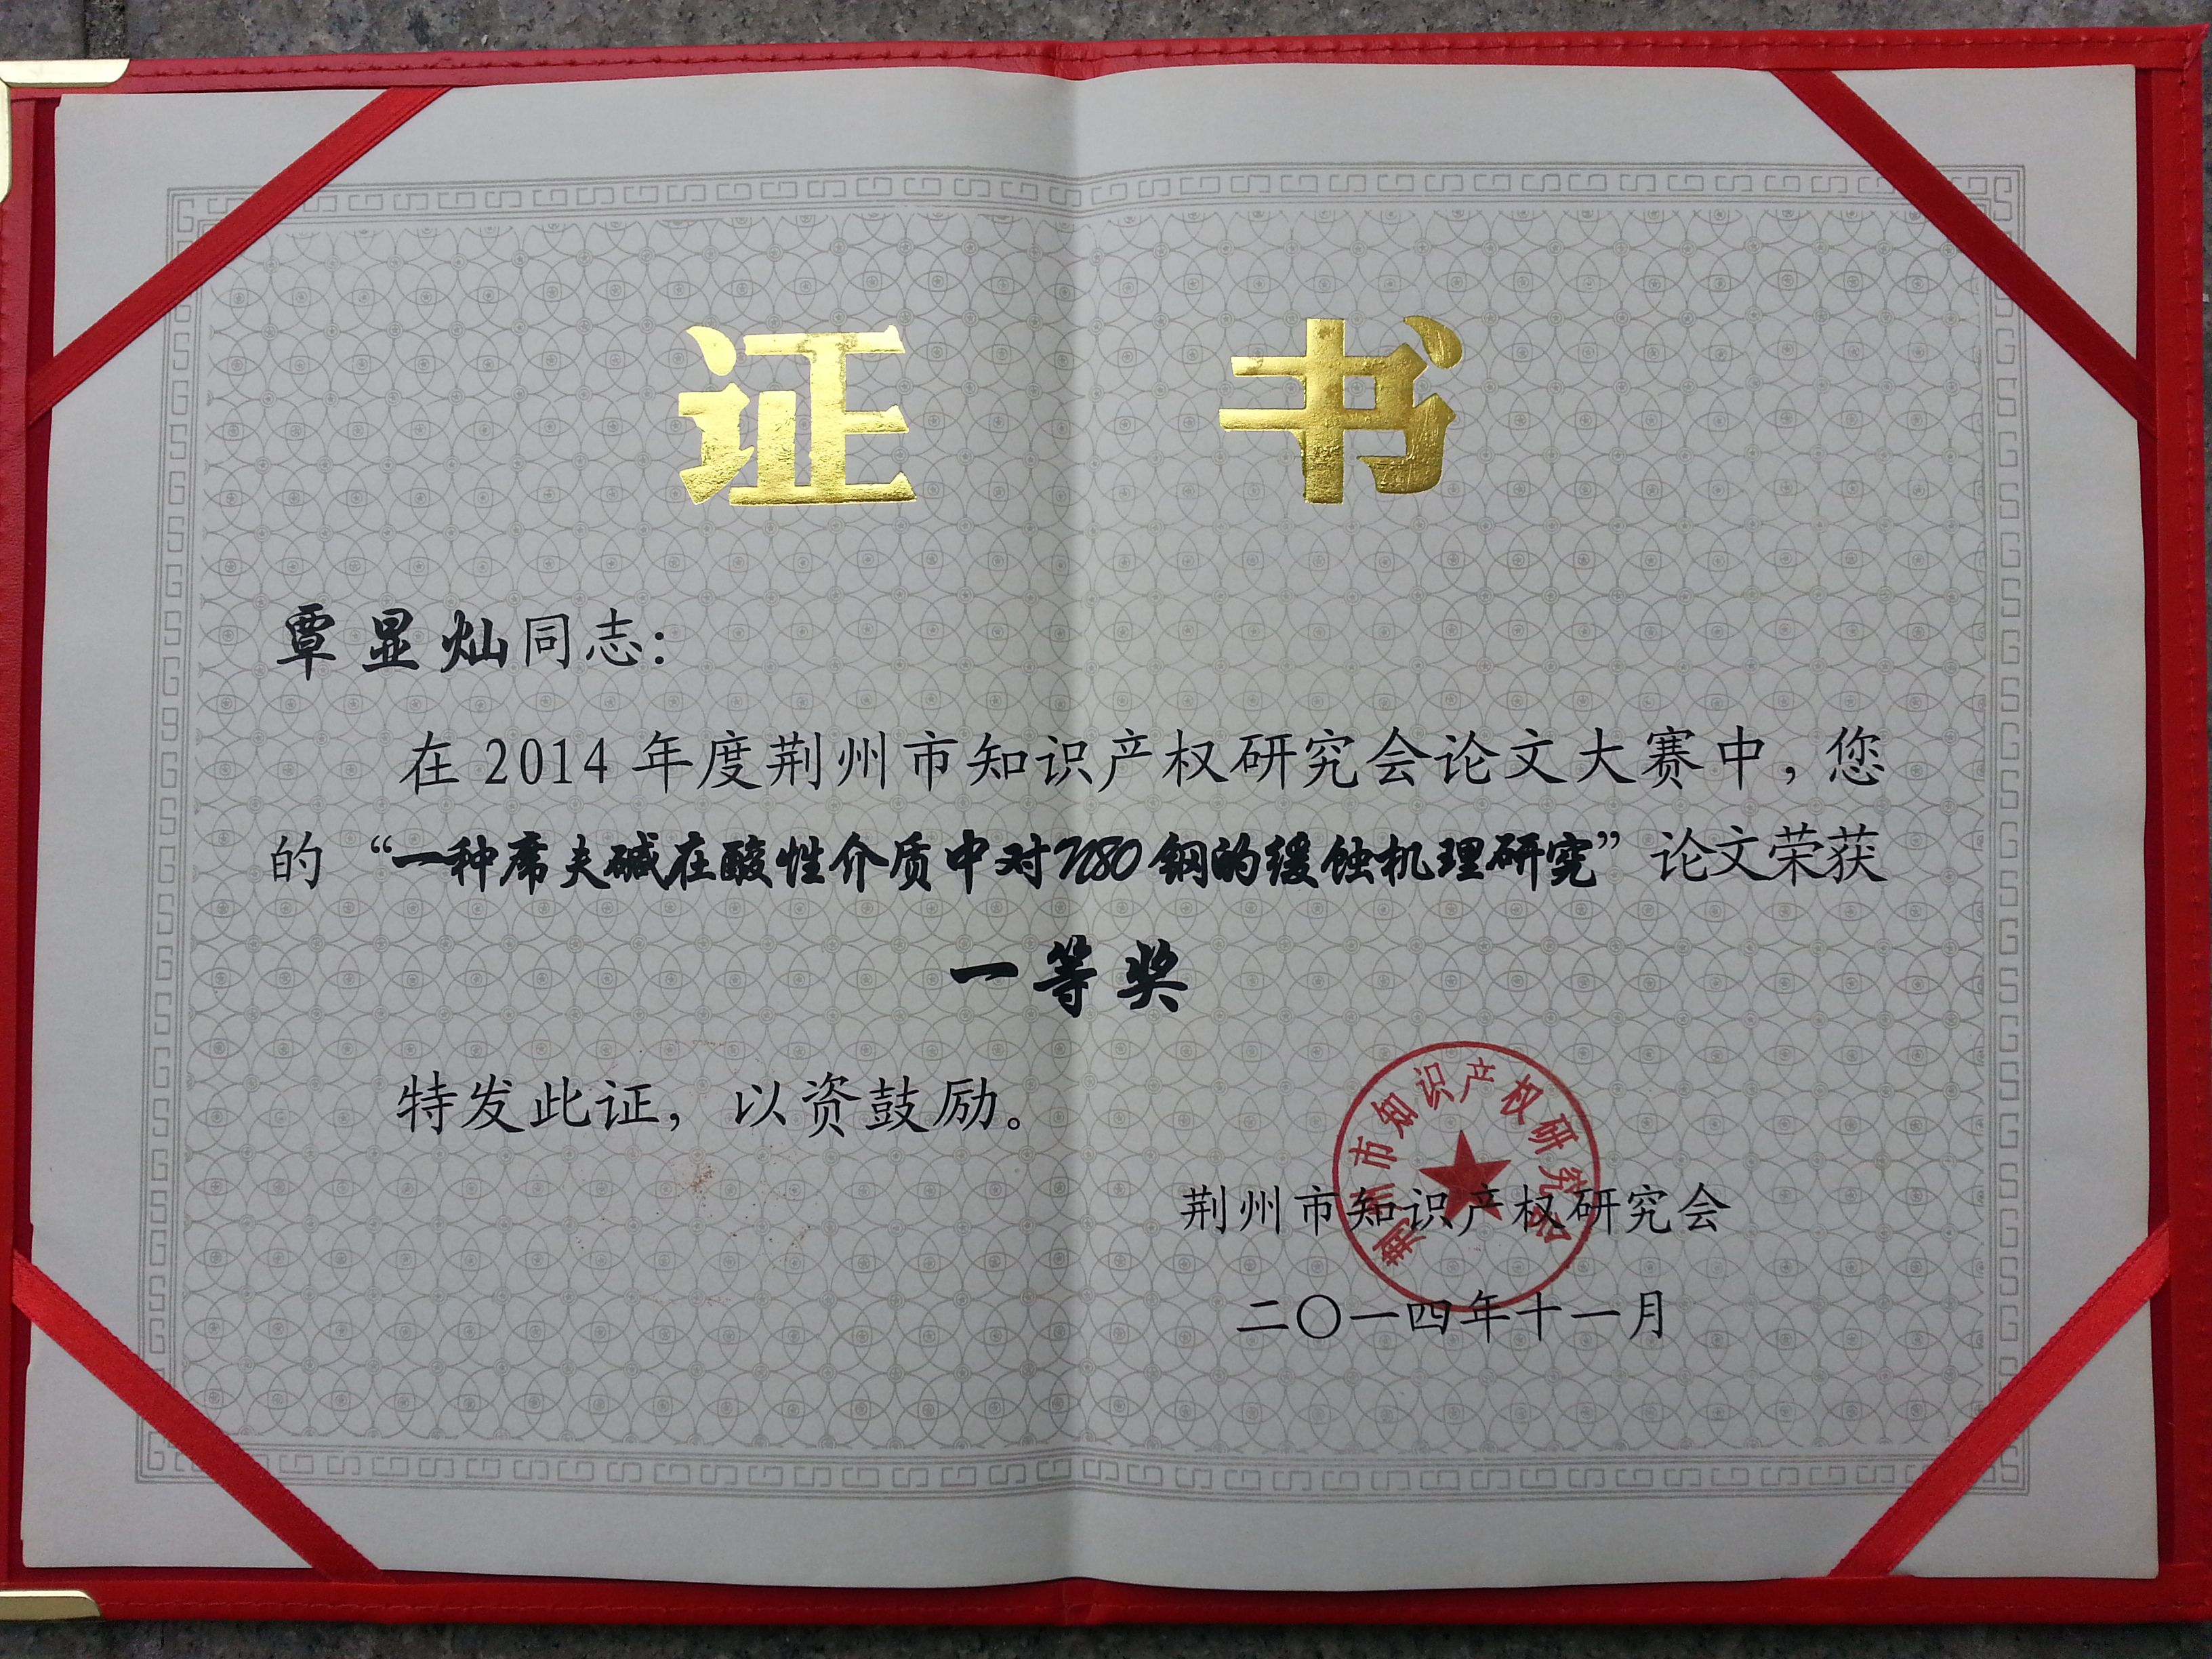 证 书
覃显灿同志：
在 2014 年度荆州市知识产权研究会论文大赛中，您
的“一种席夫碱在酸性介质中对N80钢的缓蚀机理研究”论文荣获
一等奖
特发此证，以资鼓励。
荆州市知识产权研究会
荆州市知识产权研究会
二〇一四年十一月